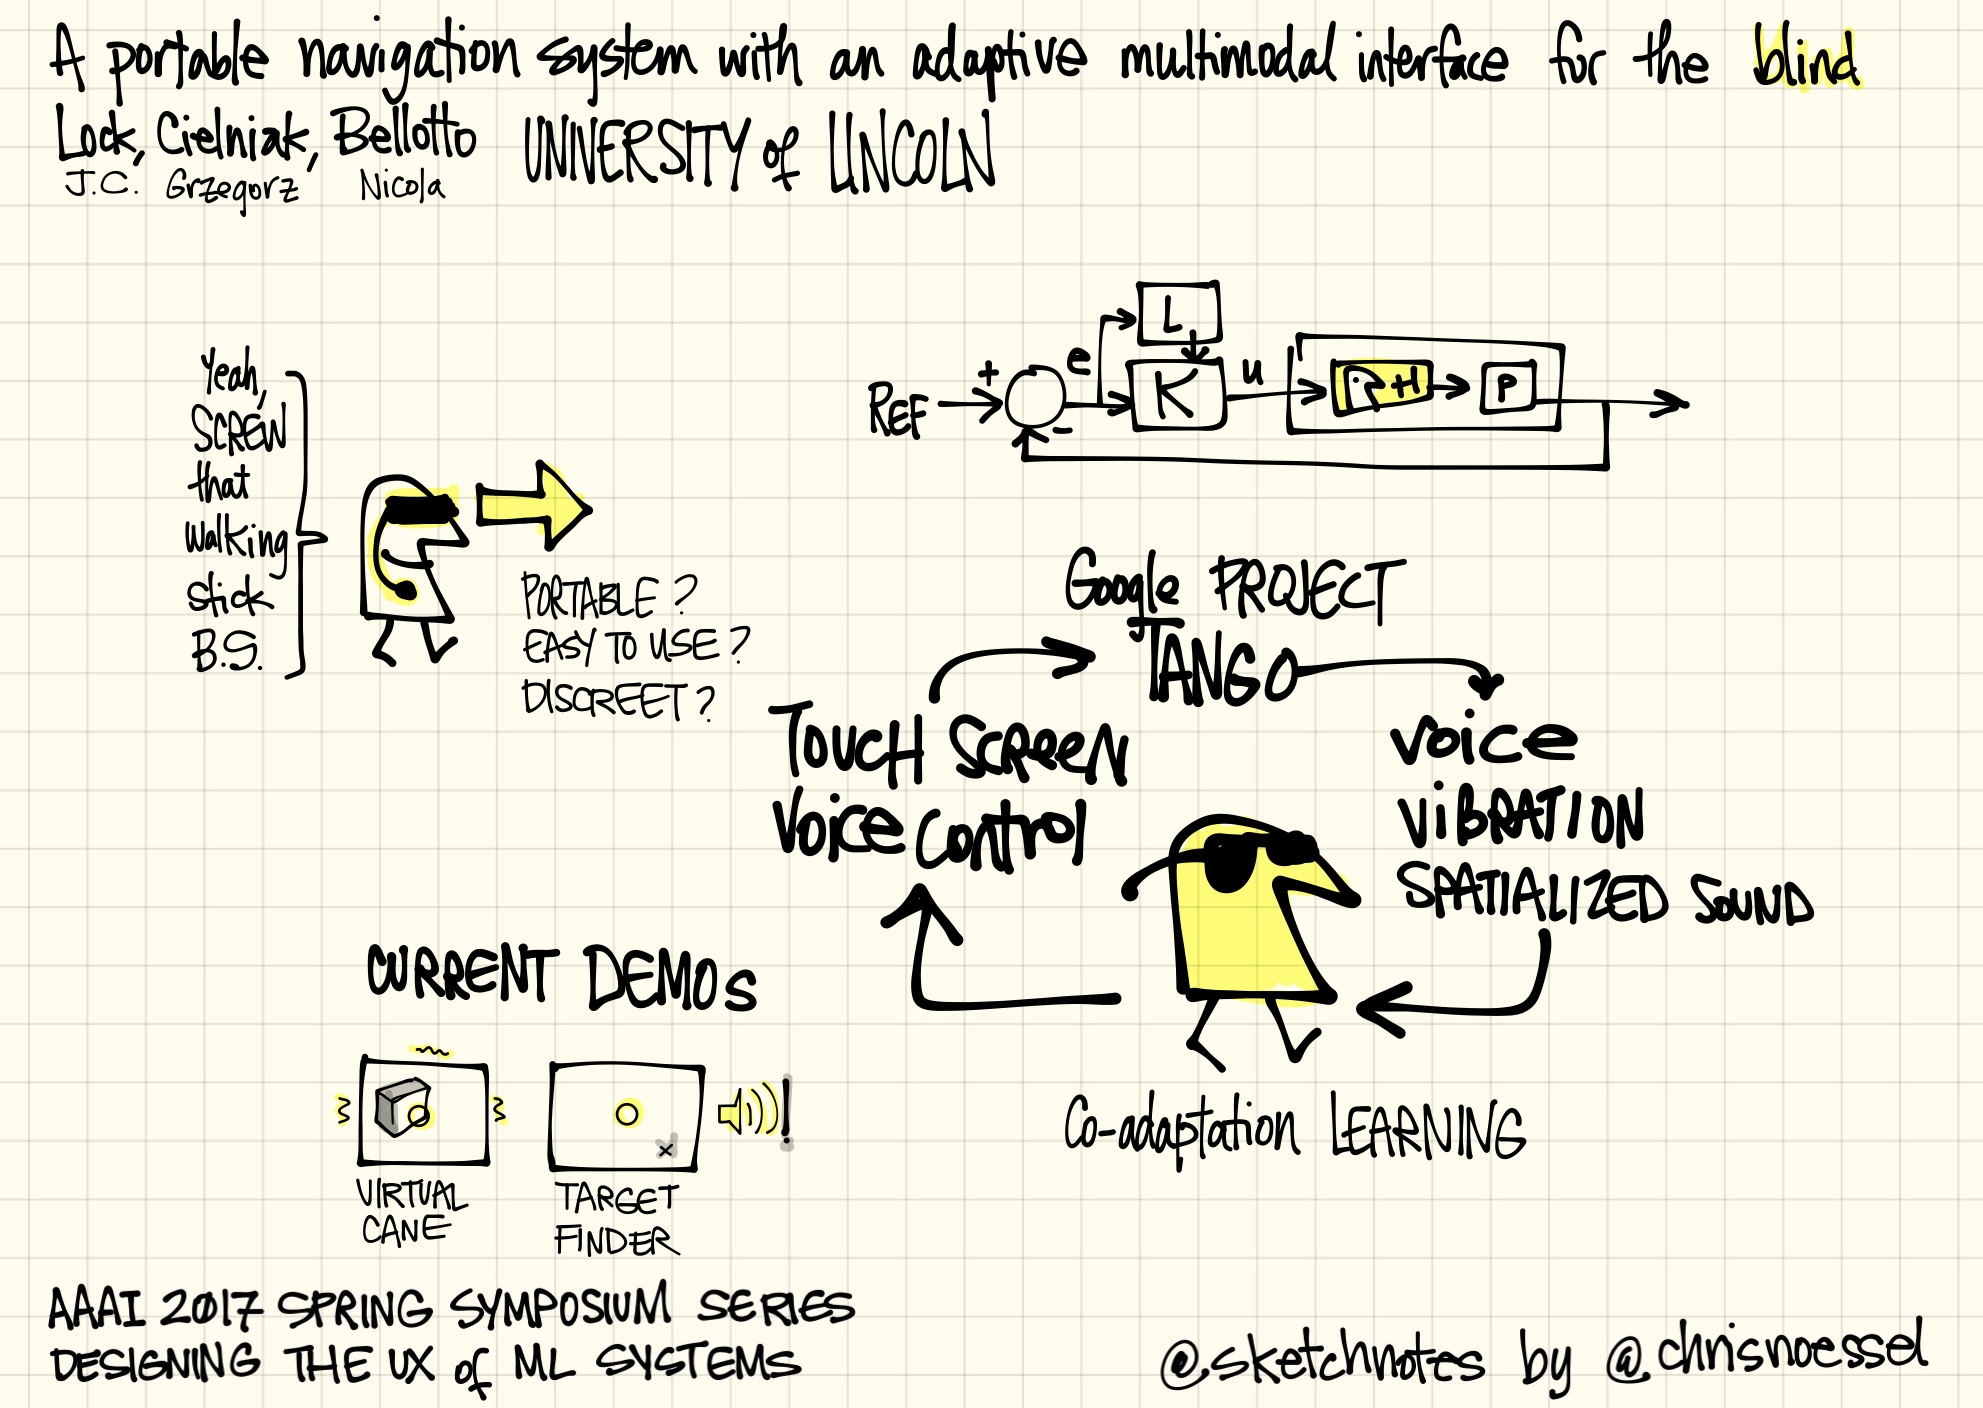 A portable navigation system with an adaptive multimodal interface for the blind
Lock, Cielniak, Bellotto UNIVERSITY of LINCOLN
J.C. Grzegorz Nicola
Yeah,
SCREW
that
walking
stick
B.S.
PORTABLE?
EASY TO USE?
DISCREET?
REF
+
-
e
L
K
u
H
P
Google PROJECT
TANGO
TOUCH SCREEN
Voice control
Voice
ViBRATION
SPATIALIZED SOUND
Co-adaptation LEARNING
CURRENT DEMOS
x
!
VIRTUAL
CANE
TARGET
FINDER
AAAI 2017 SPRING SYMPOSIUM SERIES
DESIGNING THE UX of ML SYSTEMS
@sketchnotes by @chrisnoessel